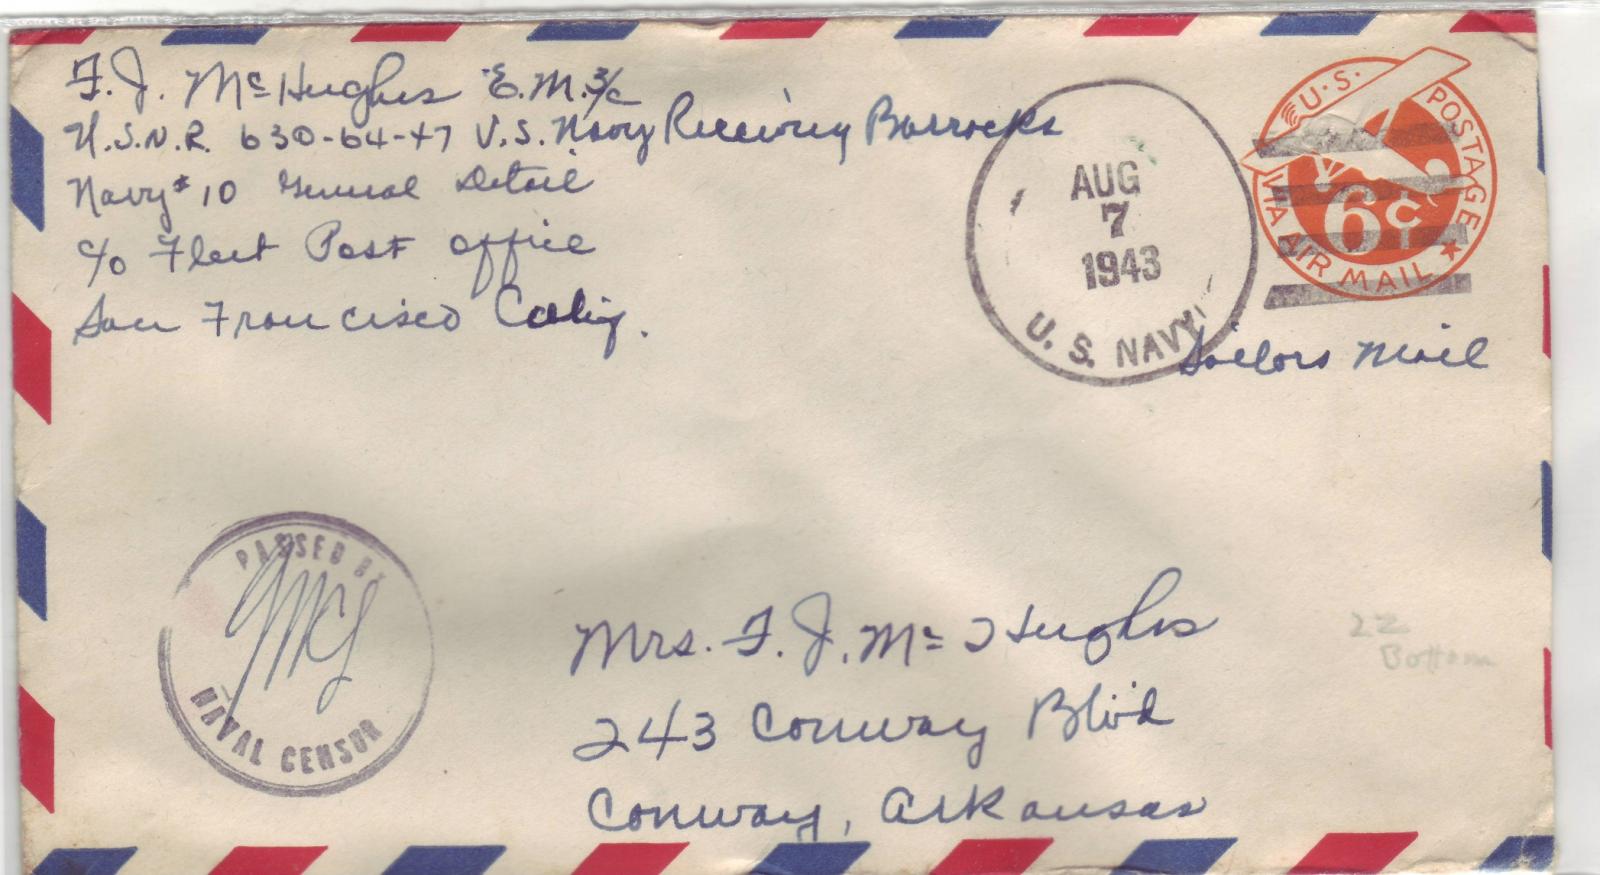 F. J. McHughes E.M. 3/c
U.S.N.R. 630-64-47 U.S. Navy Receiving Barracks
Navy # 10 General Detail
c/o Fleet Post Office
San Francisco Calif.
AUG
7
1943
U. S. NAVY
U.S. POSTAGE
6¢
VIA AIR MAIL
Sailors Mail
PASSED BY
NAVAL CENSOR
Mrs. F. J. Mc Hughes
243 Conway Blvd
Conway, Arkansas
22
Bottom